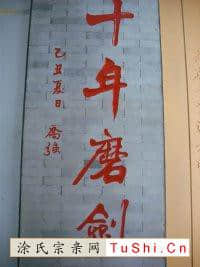 十年磨劍
己丑夏日
涂氏宗亲网
TuShi.Cn